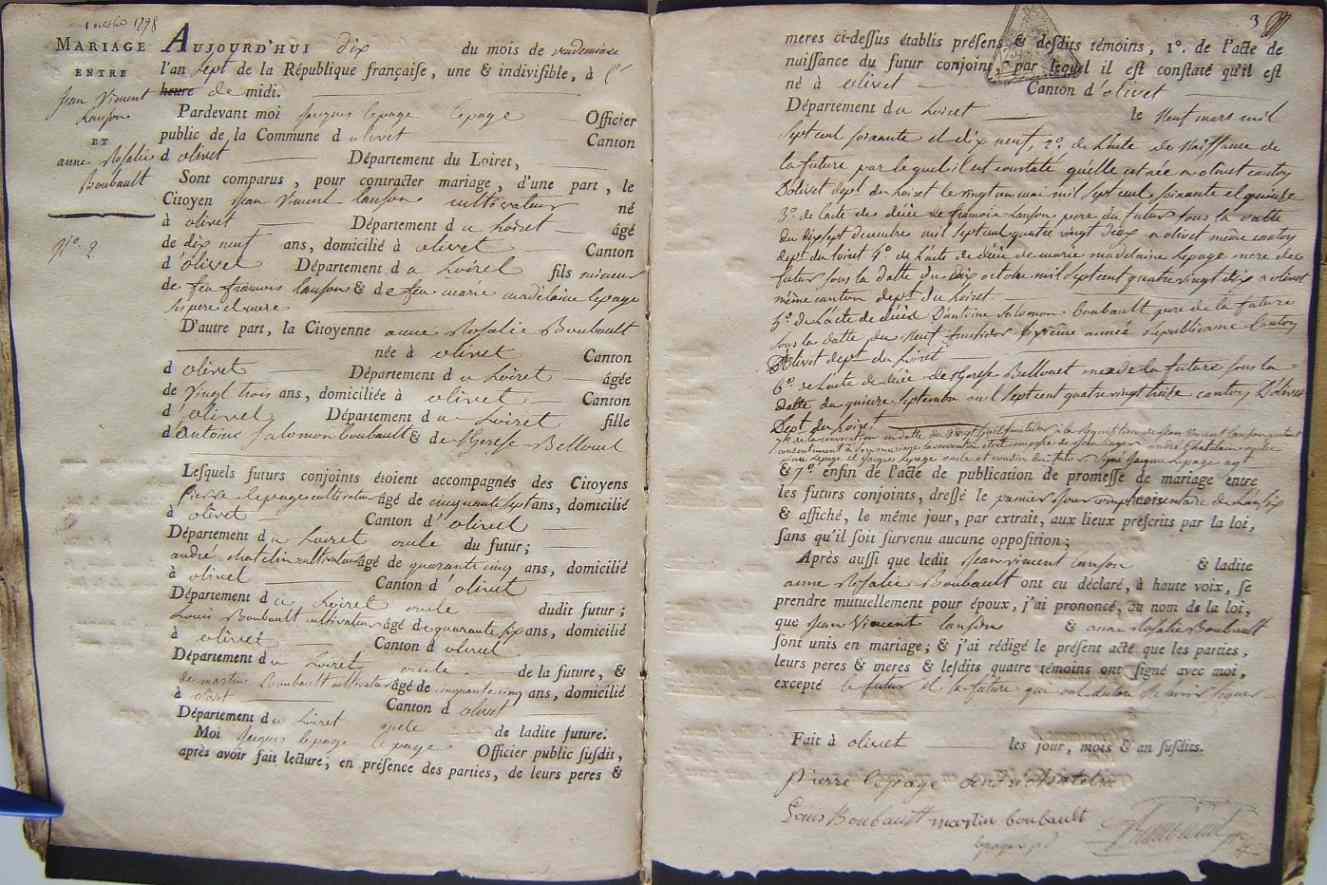 1798
MARIAGE
ENTRE
Jean Vincent
Lanson
ET
anne Rosalie
Boubault
N°. 2
AUJOURD'HUI dix du mois de vendemiaire
l'an sept de la République françaiſe, une & indiviſible, à
heure de midi.
Pardevant moi Jacques lepage lepage Officier
public de la Commune d olivet Canton
d olivet Département du Loiret,
Sont comparus, pour contracter mariage, d'une part, le
Citoyen Jean Vincent lanson cultivateur né
à olivet Département du Loiret âgé
de dix neuf ans, domicilié à olivet Canton
d'olivet Département du Loiret fils mineur
de feu françois lanson & de feu marie madelaine lepage
ses pere et mere
D'autre part, la Citoyenne anne Rosalie Boubault
née à olivet Canton
d olivet Département du Loiret âgée
de vingt trois ans, domiciliée à olivet Canton
d'olivet Département du Loiret fille
d'Antoine Salomon boubault & de therese Bellouet
Leſquels futurs conjoints étoient accompagnés des Citoyens
pierre lepage cultivateur âgé de cinquante sept ans, domicilié
à olivet Canton d'olivet
Département du Loiret oncle du futur;
andré chatelin cultivateur âgé de quarante cinq ans, domicilié
à olivet Canton d'olivet
Département du Loiret oncle dudit futur;
Louis Boubault cultivateur âgé de quarante six ans, domicilié
à olivet Canton d olivet
Département du Loiret oncle de la future, &
de martin Boubault cultivateur âgé de cinquante cinq ans, domicilié
à olivet Canton d olivet
Département du Loiret oncle de ladite future.
Moi Jacques lepage lepage Officier public ſuſdit,
après avoir fait lecture, en préſence des parties, de leurs peres &
3
meres ci-deſſus établis préſens & deſdits témoins, 1°. de l'acte de
naiſſance du futur conjoint, par lequel il eſt conſtaté qu'il eſt
né à olivet Canton d'olivet
Département du Loiret le Neuf mars mil
sept cent soixante et dix neuf, 2°. de l'acte de Naissance de
la future par lequel il est constaté qu'elle est née a olivet canton
D'olivet dept du Loiret le vingt un mai mil sept cent soixante et quinze
3°. de l'acte de décès de francois Lanson pere du futur sous la datte
du dix sept decembre mil sept cent quatre vingt deux a olivet même canton
dept du loiret 4°. de l'acte de décès de marie madelaine Lepage mere du
futur sous la datte du dix octobre mil sept cent quatre vingt dix a olivet
même canton dept du Loiret
5°. de l'acte de décès D'antoine Salomon boubault pere de la future
sous la datte du neuf année republicaine Canton
D'olivet dept du Loiret
6°. de l'acte de décès de therese Bellouet mere de la future sous la
datte du quinze septembre mil sept cent quatre vingt treize canton D'olivet
Dept du Loiret
& 7°. enfin de l'acte de publication de promeſſe de mariage entre
les futurs conjoints, dreſſé le premier jour complementaire de l'an six
& affiché, le même jour, par extrait, aux lieux preſcrits par la loi,
ſans qu'il ſoit ſurvenu aucune oppoſition;
Après auſſi que ledit Jean vincent lanson & ladite
anne Rosalie Boubault ont eu déclaré, à haute voix, ſe
prendre mutuellement pour époux, j'ai prononcé, au nom de la loi,
que Jean Vincent lanson & anne Rosalie Boubault
ſont unis en mariage; & j'ai rédigé le préſent acte que les parties,
leurs peres & meres & leſdits quatre témoins ont ſigné avec moi,
excepté le futur et la future qui ont declaré ne savoir signer
Fait à olivet les jour, mois & an ſuſdits.
pierre lepage andré chatelin
Louis Boubault martin boubault
lepage